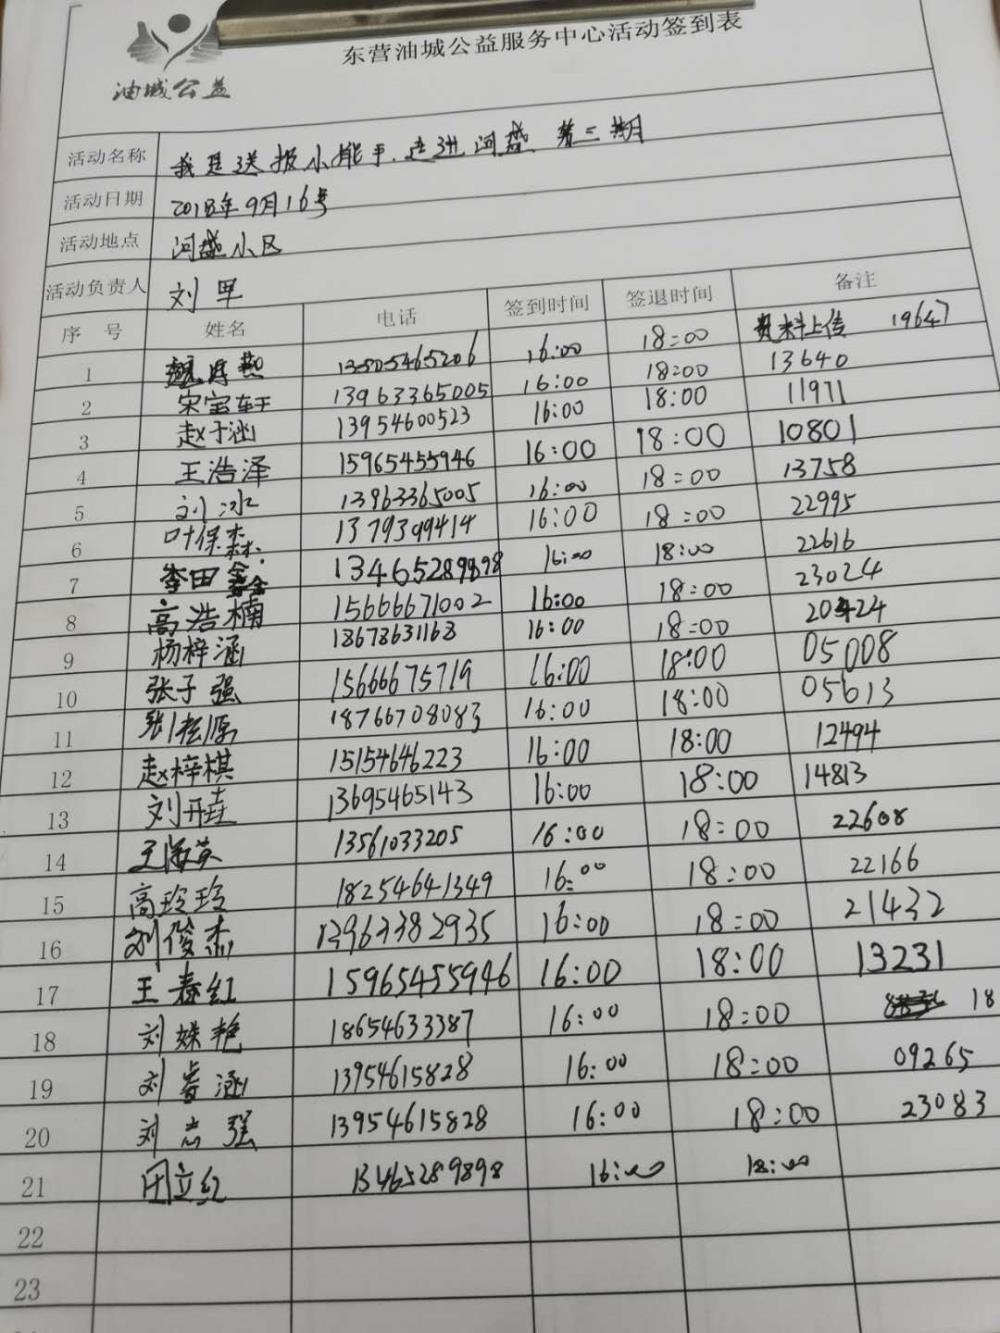 油城公益
东营油城公益服务中心活动签到表
活动名称 我是送报小能手.走进河盛 第三期
活动日期 2018年9月16号
活动地点 河盛小区
活动负责人 刘军
序号 姓名 电话 签到时间 签退时间 备注
资料上传 19647
1 16:00 18:00 13640
2 宋宝轩 13963365005 16:00 18:00 11971
3 赵子涵 13954600523 16:00 18:00 10801
4 王浩泽 15965455946 16:00 18:00 13758
5 刘冰 13963365005 16:00 18:00 22995
6 叶保森 16:00 18:00 22616
7 李田鑫 13465289898 16:00 18:00 23024
8 高浩楠 15666671002 16:00 18:00 20424
9 杨梓涵 18678631168 16:00 18:00 05008
10 张子强 15666675719 16:00 18:00 05613
11 18766708083 16:00 18:00 12494
12 赵梓棋 15154646223 16:00 18:00 14813
13 刘开垚 13695465143 16:00 18:00 22608
14 王海英 13561033205 16:00 18:00 22166
15 高玲玲 18254641349 16:00 18:00 21432
16 刘俊杰 13963382935 16:00 18:00 13231
17 王春红 15965455946 16:00 18:00 18
18 刘姝艳 18654633387 16:00 18:00 09265
19 刘睿涵 13954615828 16:00 18:00 23083
20 刘志强 13954615828 16:00 18:00
21 闭立红 13465289898 16:00 18:00
22
23